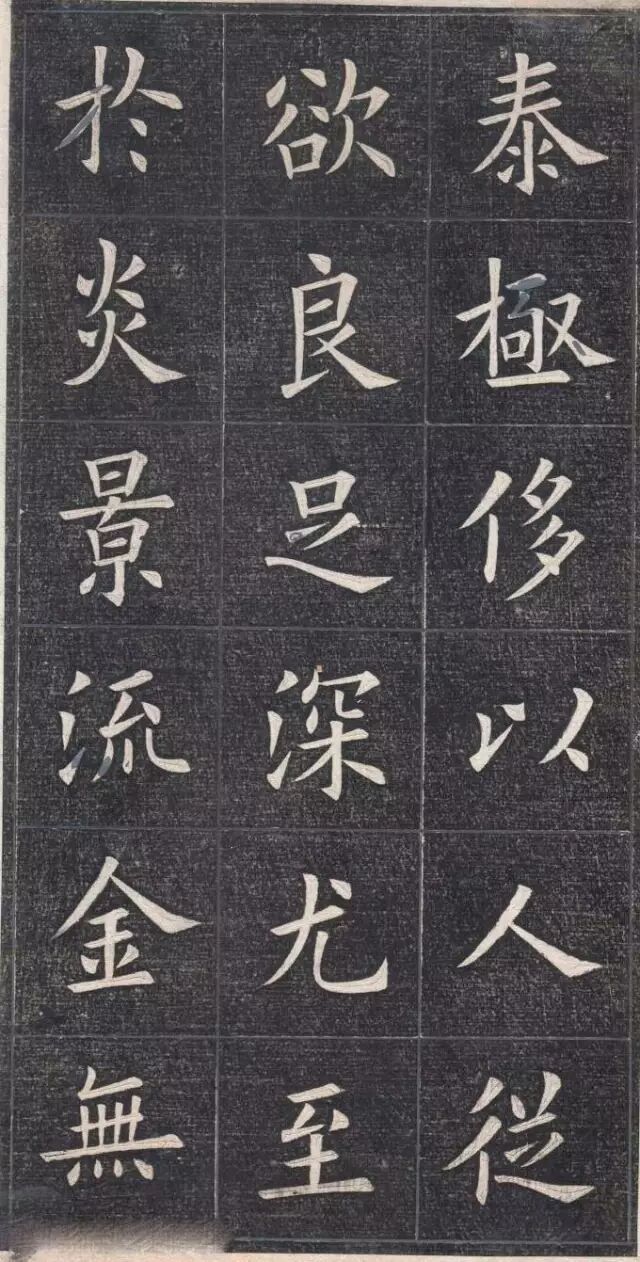 泰極侈以人從
欲良足深尤至
於炎景流金無